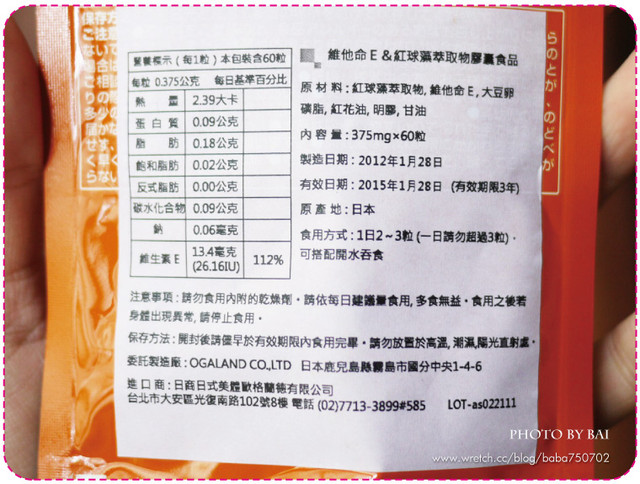 保存方
ご注意
営養標示（每1粒）本包裝含60粒
每粒 0.375公克 每日基準百分比
熱 量 2.39大卡
蛋 白 質 0.09公克
脂 肪 0.18公克
飽和脂肪 0.02公克
反式脂肪 0.00公克
碳水化合物 0.09公克
鈉 0.06毫克
維生素 E 13.4毫克 (26.16IU) 112%
維他命 E & 紅球藻萃取物膠囊食品
原 材 料 : 紅球藻萃取物, 維他命 E , 大豆卵
磷脂, 紅花油, 明膠, 甘油
內 容 量 : 375mg×60粒
製造日期 : 2012年1月28日
有效日期 : 2015年1月28日 (有效期限3年)
原 產 地 : 日本
食用方式 : 1日2～3粒 (一日請勿超過3粒)，
可搭配開水吞食
らのとが
のどへが
注意事項 : 請勿食用內附的乾燥劑。請依每日建議量食用, 多食無益。食用之後若
身體出現異常, 請停止食用。
保存方法 : 開封後請儘早於有效期限內食用完畢。請勿放置於高溫, 潮濕,陽光直射處。
委託製造廠 : OGALAND CO.,LTD 日本鹿兒島縣霧島市國分中央1-4-6
進 口 商 : 日商日式美體歐格蘭德有限公司
台北市大安區光復南路102號8樓 電話 (02)7713-3899#585 LOT-as022111
PHOTO BY BAI
www.wretch.cc/blog/baba750702